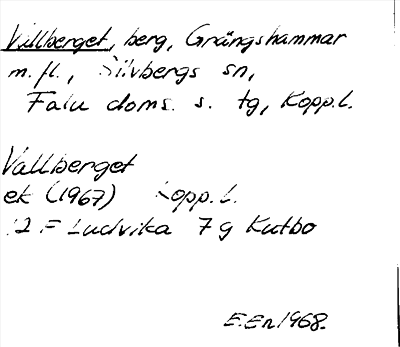 Vallberget, berg, Grängshammar
m.fl., Silvbergs sn,
Falu doms. s. tg, Kopp.l.
Vallberget
ek (1967) Kopp.l.
12 F Ludvika 7 g Kutbo
E.En 1968.